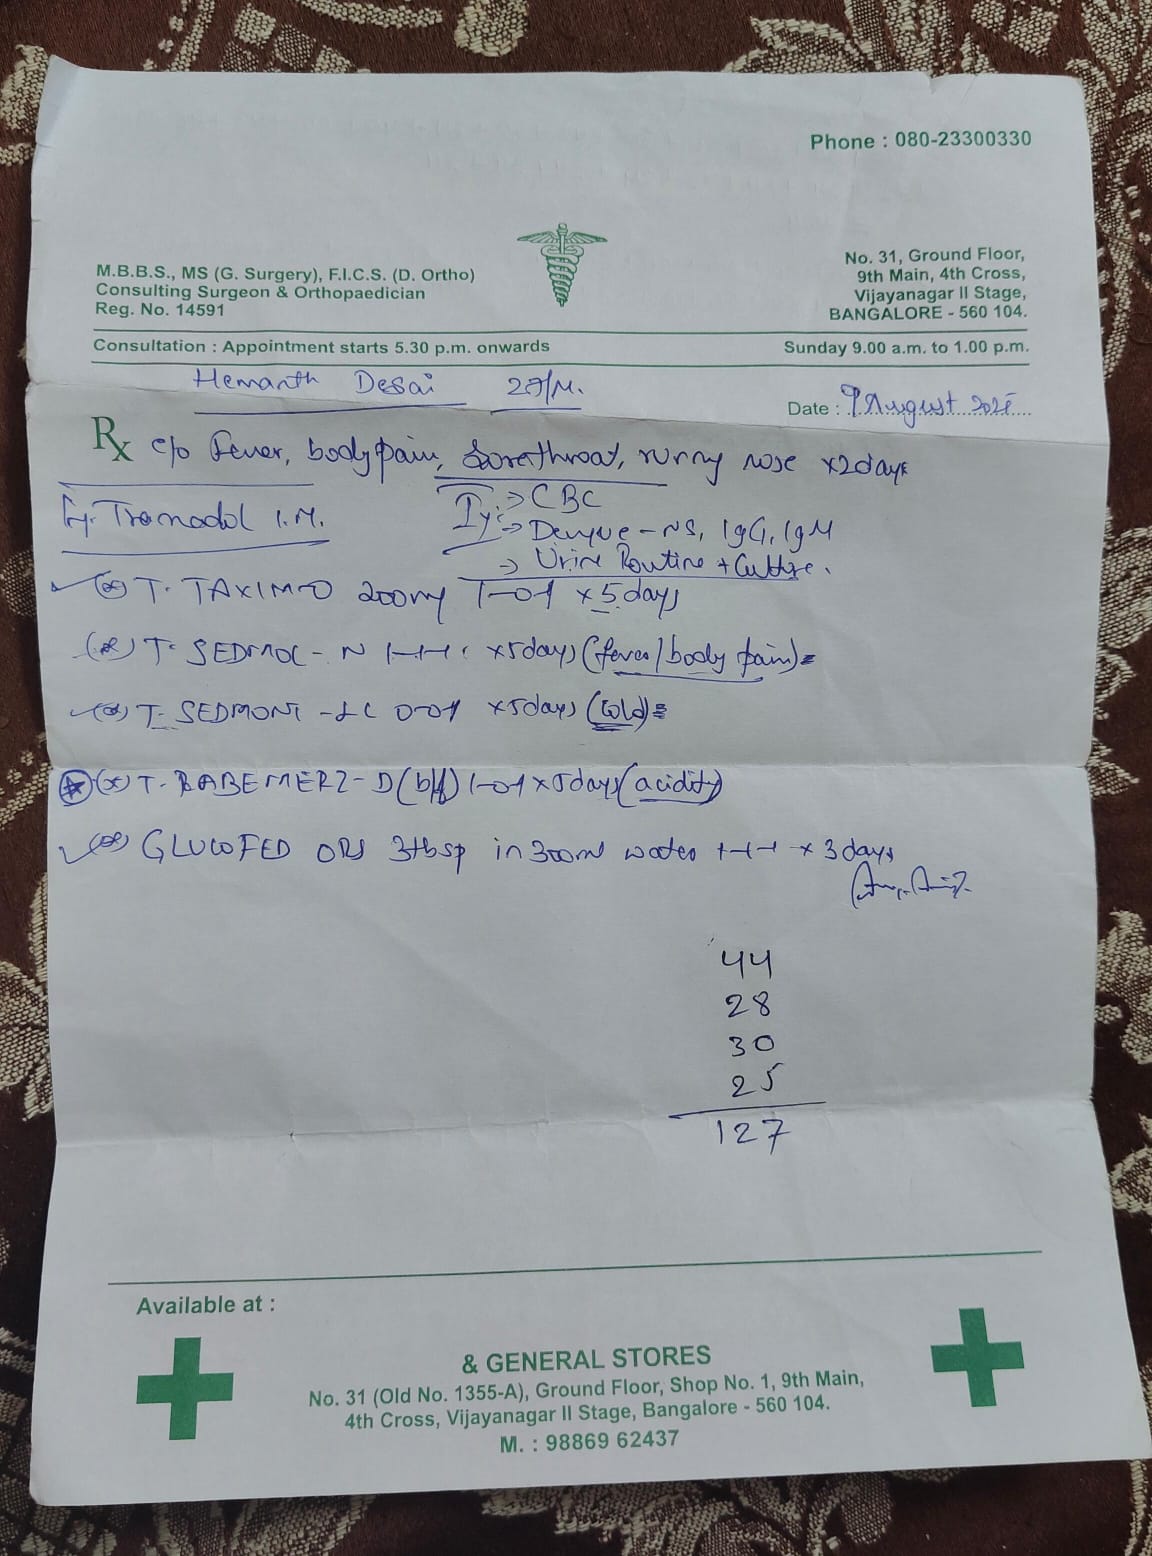 Phone : 080-23300330
M.B.B.S., MS (G. Surgery), F.I.C.S. (D. Ortho)
Consulting Surgeon & Orthopaedician
Reg. No. 14591
No. 31, Ground Floor,
9th Main, 4th Cross,
Vijayanagar II Stage,
BANGALORE - 560 104.
Consultation : Appointment starts 5.30 p.m. onwards
Sunday 9.00 a.m. to 1.00 p.m.
Hemanth Desai 27/M.
Date : 9 August 2025
Rx c/o Fever, body pain, sorethroat, runny nose x2days
Tramadol I.M.
→ CBC
→ Dengue - NS, IgG, IgM
→ Urine Routine + Culture.
T. TAXIM-O 200mg 1-0-1 x 5 days
T. SEDMOL - N 1-1-1 x5days (fever/body pain)
T. SEDMONT - LC 0-0-1 x5days (Cold)
T. RABEMERZ - D (b/f) 1-0-1 x 5days (acidity)
GLUCOFED ORS 3tbsp in 300ml water 1-1-1 x 3 days
44
28
30
25
127
Available at :
& GENERAL STORES
No. 31 (Old No. 1355-A), Ground Floor, Shop No. 1, 9th Main,
4th Cross, Vijayanagar II Stage, Bangalore - 560 104.
M. : 98869 62437